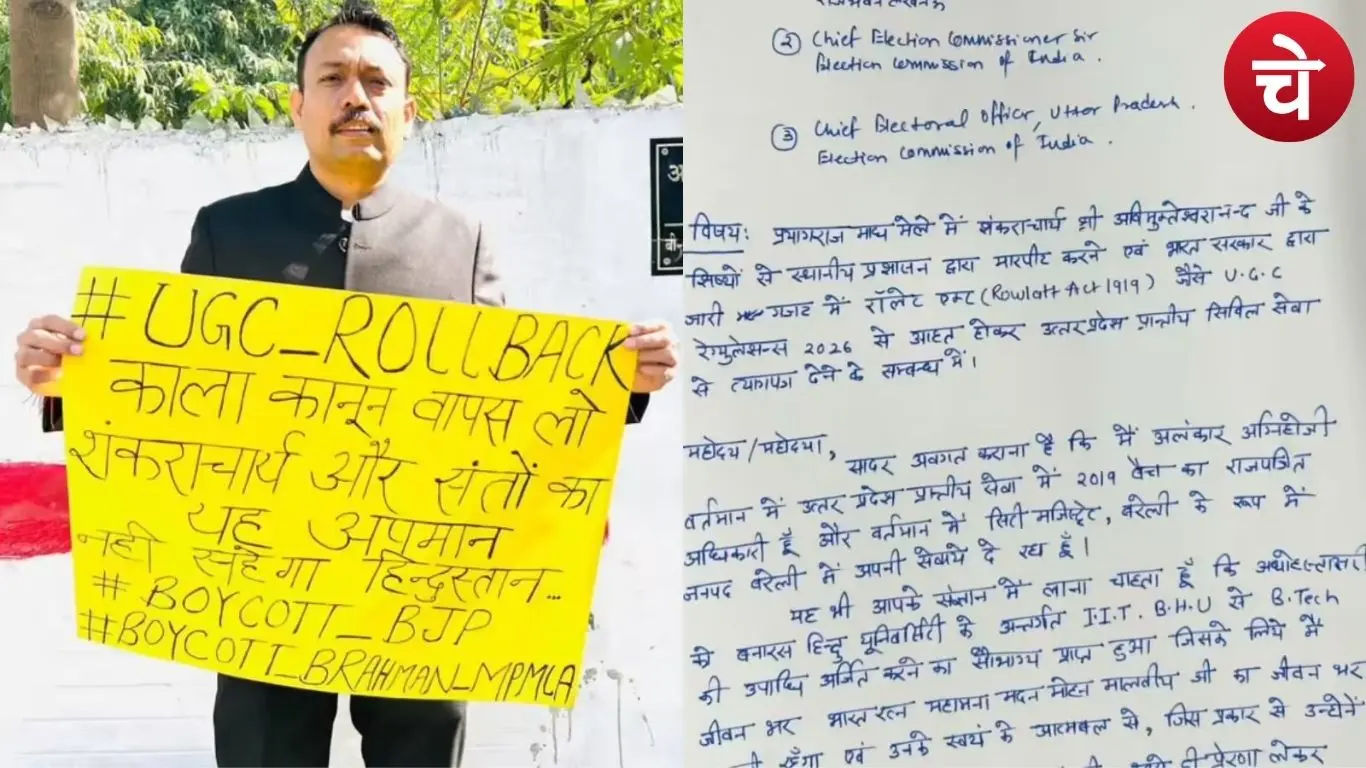 # UGC_ROLLBACK
काला कानून वापस लो
शंकराचार्य और संतों का
यह अपमान
नही सहेगा हिन्दुस्तान...
# BOYCOTT_BJP
#BOYCOTT_BRAHMAN_MPMLA
② Chief Election Commissioner Sir
Election Commission of India.
③ Chief Electoral Officer, Uttar Pradesh.
Election Commission of India.
विषय: प्रयागराज माघ मेले में शंकराचार्य श्री अविमुक्तेश्वरानन्द जी के
शिष्यों से स्थानीय प्रशासन द्वारा मारपीट करने एवं भारत सरकार द्वारा
जारी गजट में रॉलेट एक्ट (Rowlatt Act 1919) जैसे U.G.C
रेग्युलेसन्स 2026 से आहत होकर उत्तर प्रदेश प्रान्तीय सिविल सेवा
से त्यागपत्र देने के सम्बन्ध में।
महोदय/महोदया,
सादर अवगत कराना है कि मैं अलंकार अग्निहोत्री
वर्तमान में उत्तर प्रदेश प्रान्तीय सेवा में 2019 बैच का राजपत्रित
अधिकारी हूँ और वर्तमान में सिटी मजिस्ट्रेट, बरेली के रूप में
जनपद बरेली में अपनी सेवायें दे रहा हूँ।
यह भी आपके संज्ञान में लाना चाहता हूँ कि अधोहस्ताक्षरी
को बनारस हिन्दू यूनिवर्सिटी के अन्तर्गत I.I.T. B.H.U से B.Tech
की उपाधि अर्जित करने का सौभाग्य प्राप्त हुआ जिसके लिये मैं
जीवन भर भारत रत्न महामना मदन मोहन मालवीय जी का जीवन भर
रहूँगा एवं उनके स्वयं के आत्मबल से, जिस प्रकार से उन्होनें
प्रेरणा लेकर
चे